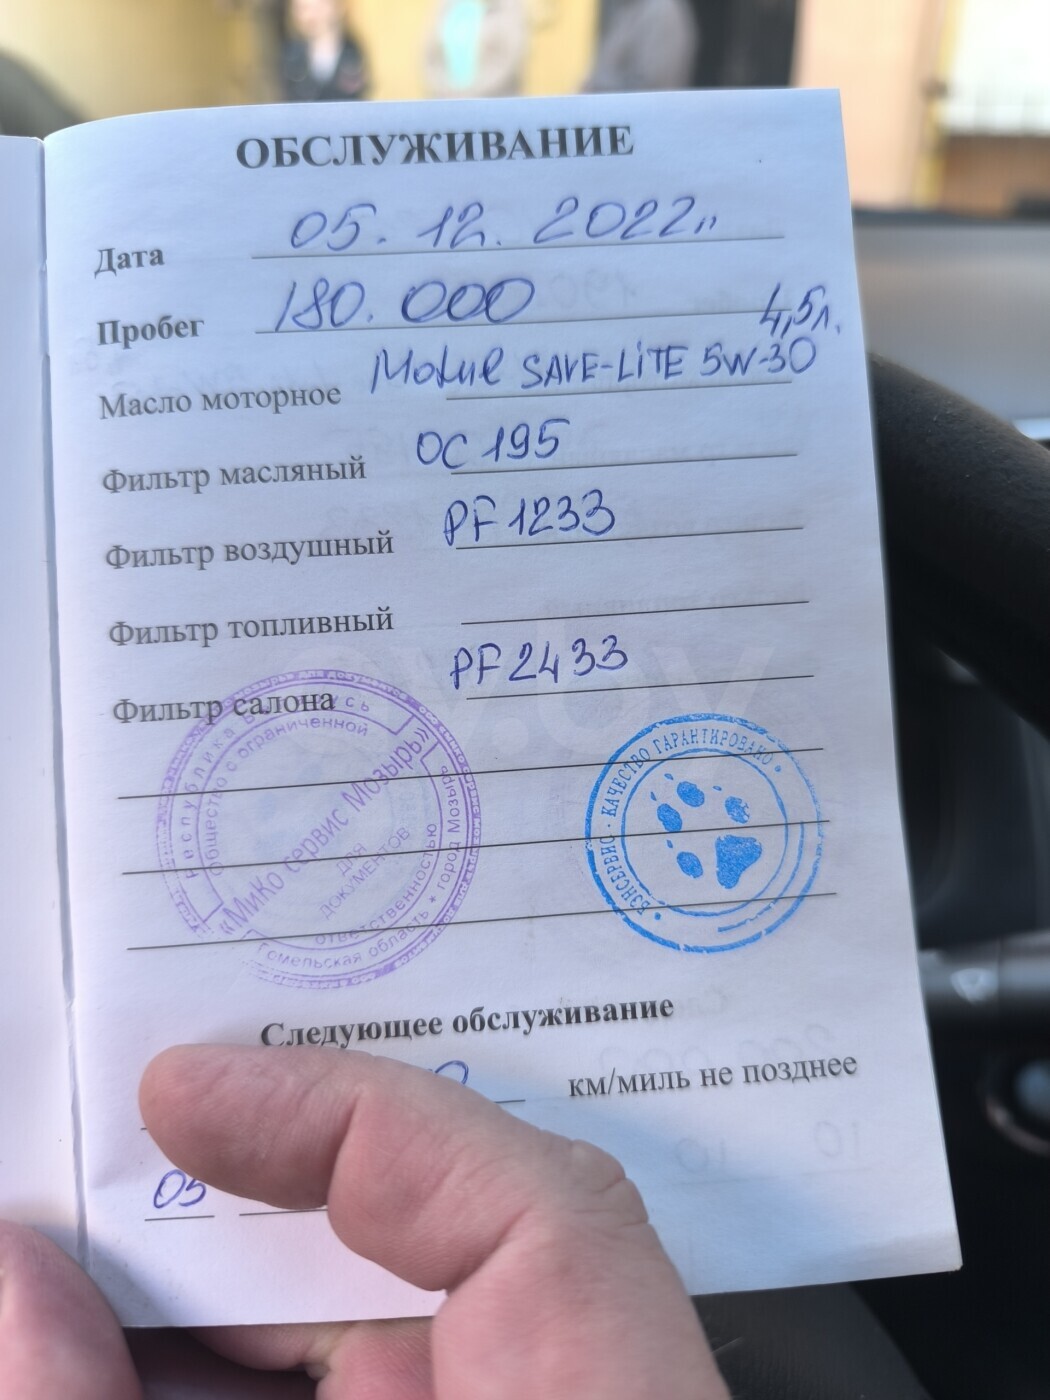 ОБСЛУЖИВАНИЕ
Дата 05.12.2022г.
Пробег 180.000
4,5л.
Масло моторное Motul SAVE-LITE 5W-30
Фильтр масляный OC 195
Фильтр воздушный PF1233
Фильтр топливный
Фильтр салона PF2433
Республика Беларусь
Общество с ограниченной
ответственностью
«МиКо сервис Мозырь»
ДЛЯ
ДОКУМЕНТОВ
Гомельская область * город Мозырь
КАЧЕСТВО ГАРАНТИРОВАНО
ВЭНСЕРВИС
av.by
Следующее обслуживание
км/миль не позднее
05